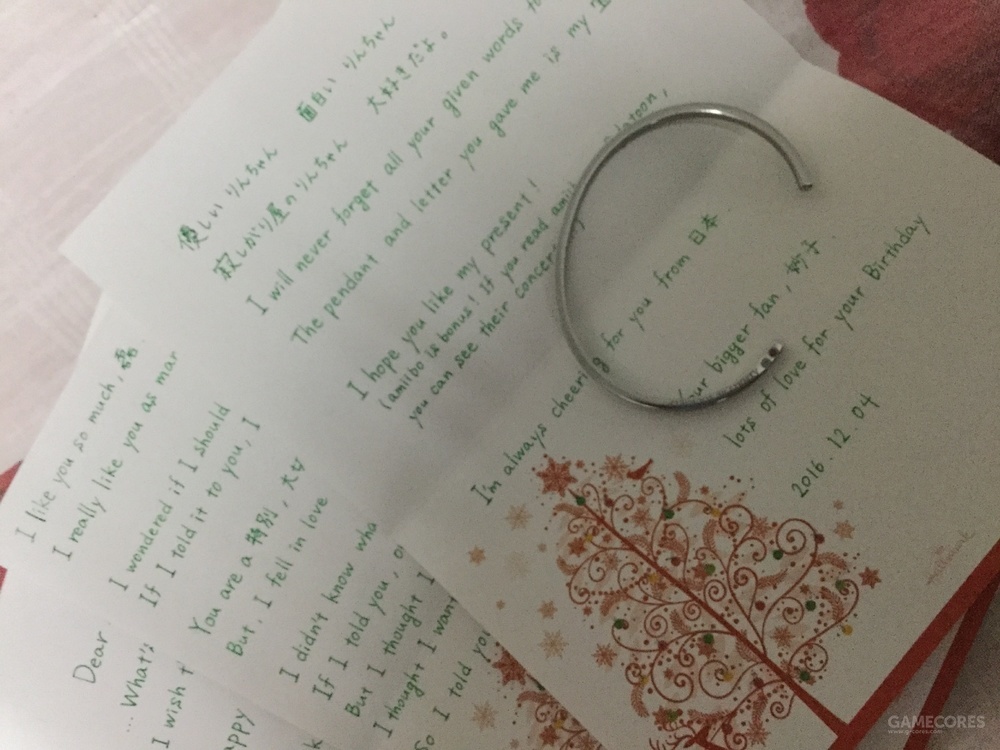 面白い りんちゃん
優しい りんちゃん 大好きだよ。
寂しがり屋のりんちゃん
I will never forget all your given words to
The pendant and letter you gave me is my
I hope you like my present!
(amiibo is bonus! If you read amiibo
you can see their concert
I'm always cheering for you from 日本.
Your bigger fan, 妙子.
lots of love for your Birthday
2016. 12. 04
Hallmark
I like you so much,
I really like you as mar
I wondered if I should
If I told it to you, I
You are a 特別, 大切
But, I fell in love
I didn't know wha
If I told you,
But I thought I
I thought I wan
So I told you
Dear
... What's
I wish t
appy
GAMECORES
www.g-cores.com